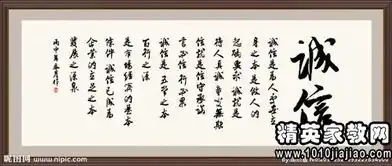 誠信
诚信是为人处世立
身之本是做人的
起码要求 诚就是
待人真诚
信就是信守承诺
言必信 行必果
诚信是五常之本
百行之源
是市场经济的基本
条件 诚信已成为
企业的立足之本
发展之源泉
丙申年春月作
昵图网 www.nipic.com
精英家教网
www.1010jiajiao.com